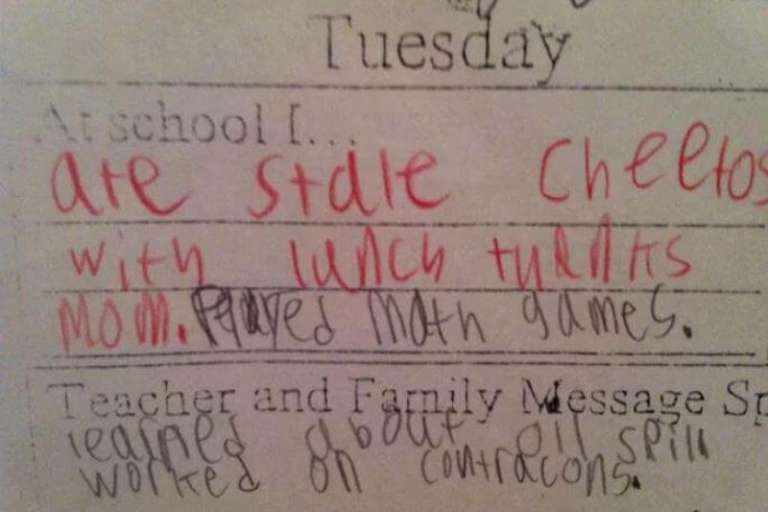 Tuesday
At school I...
are stale cheetos
with lunch thankts
Mom. Played math games.
Teacher and Family Message Sp
learned about oil spill
worked on contracons.